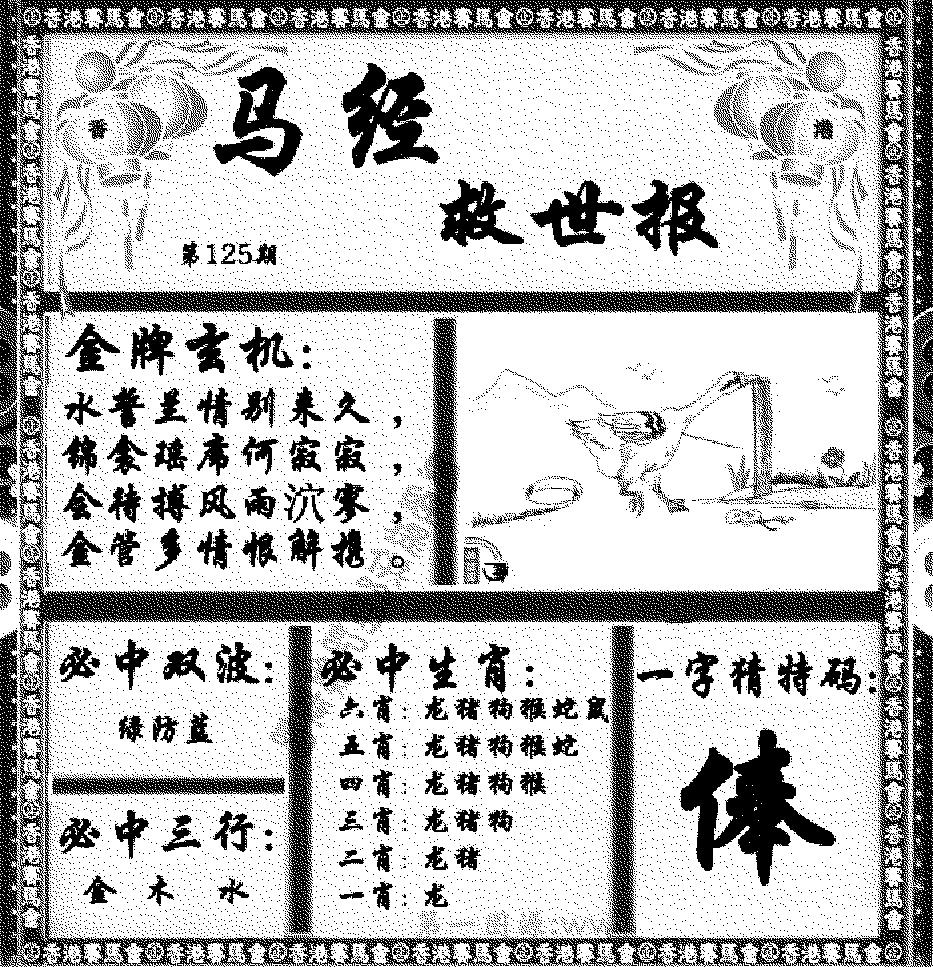 香港賽馬會香港賽馬會香港賽馬會香港賽馬會香港賽馬會香港賽馬會香港賽馬會
香
港
马经
救世报
第125期
金牌玄机：
水誓兰情别来久，
锦衾瑶席何寂寂，
会待搏风雨泬寥，
金管多情恨解携。
必中双波：
绿防蓝
必中三行：
金 木 水
必中生肖：
六肖：龙猪狗猴蛇鼠
五肖：龙猪狗猴蛇
四肖：龙猪狗猴
三肖：龙猪狗
二肖：龙猪
一肖：龙
一字猜特码：
俸
香港賽馬會香港賽馬會香港賽馬會香港賽馬會香港賽馬會香港賽馬會香港賽馬會